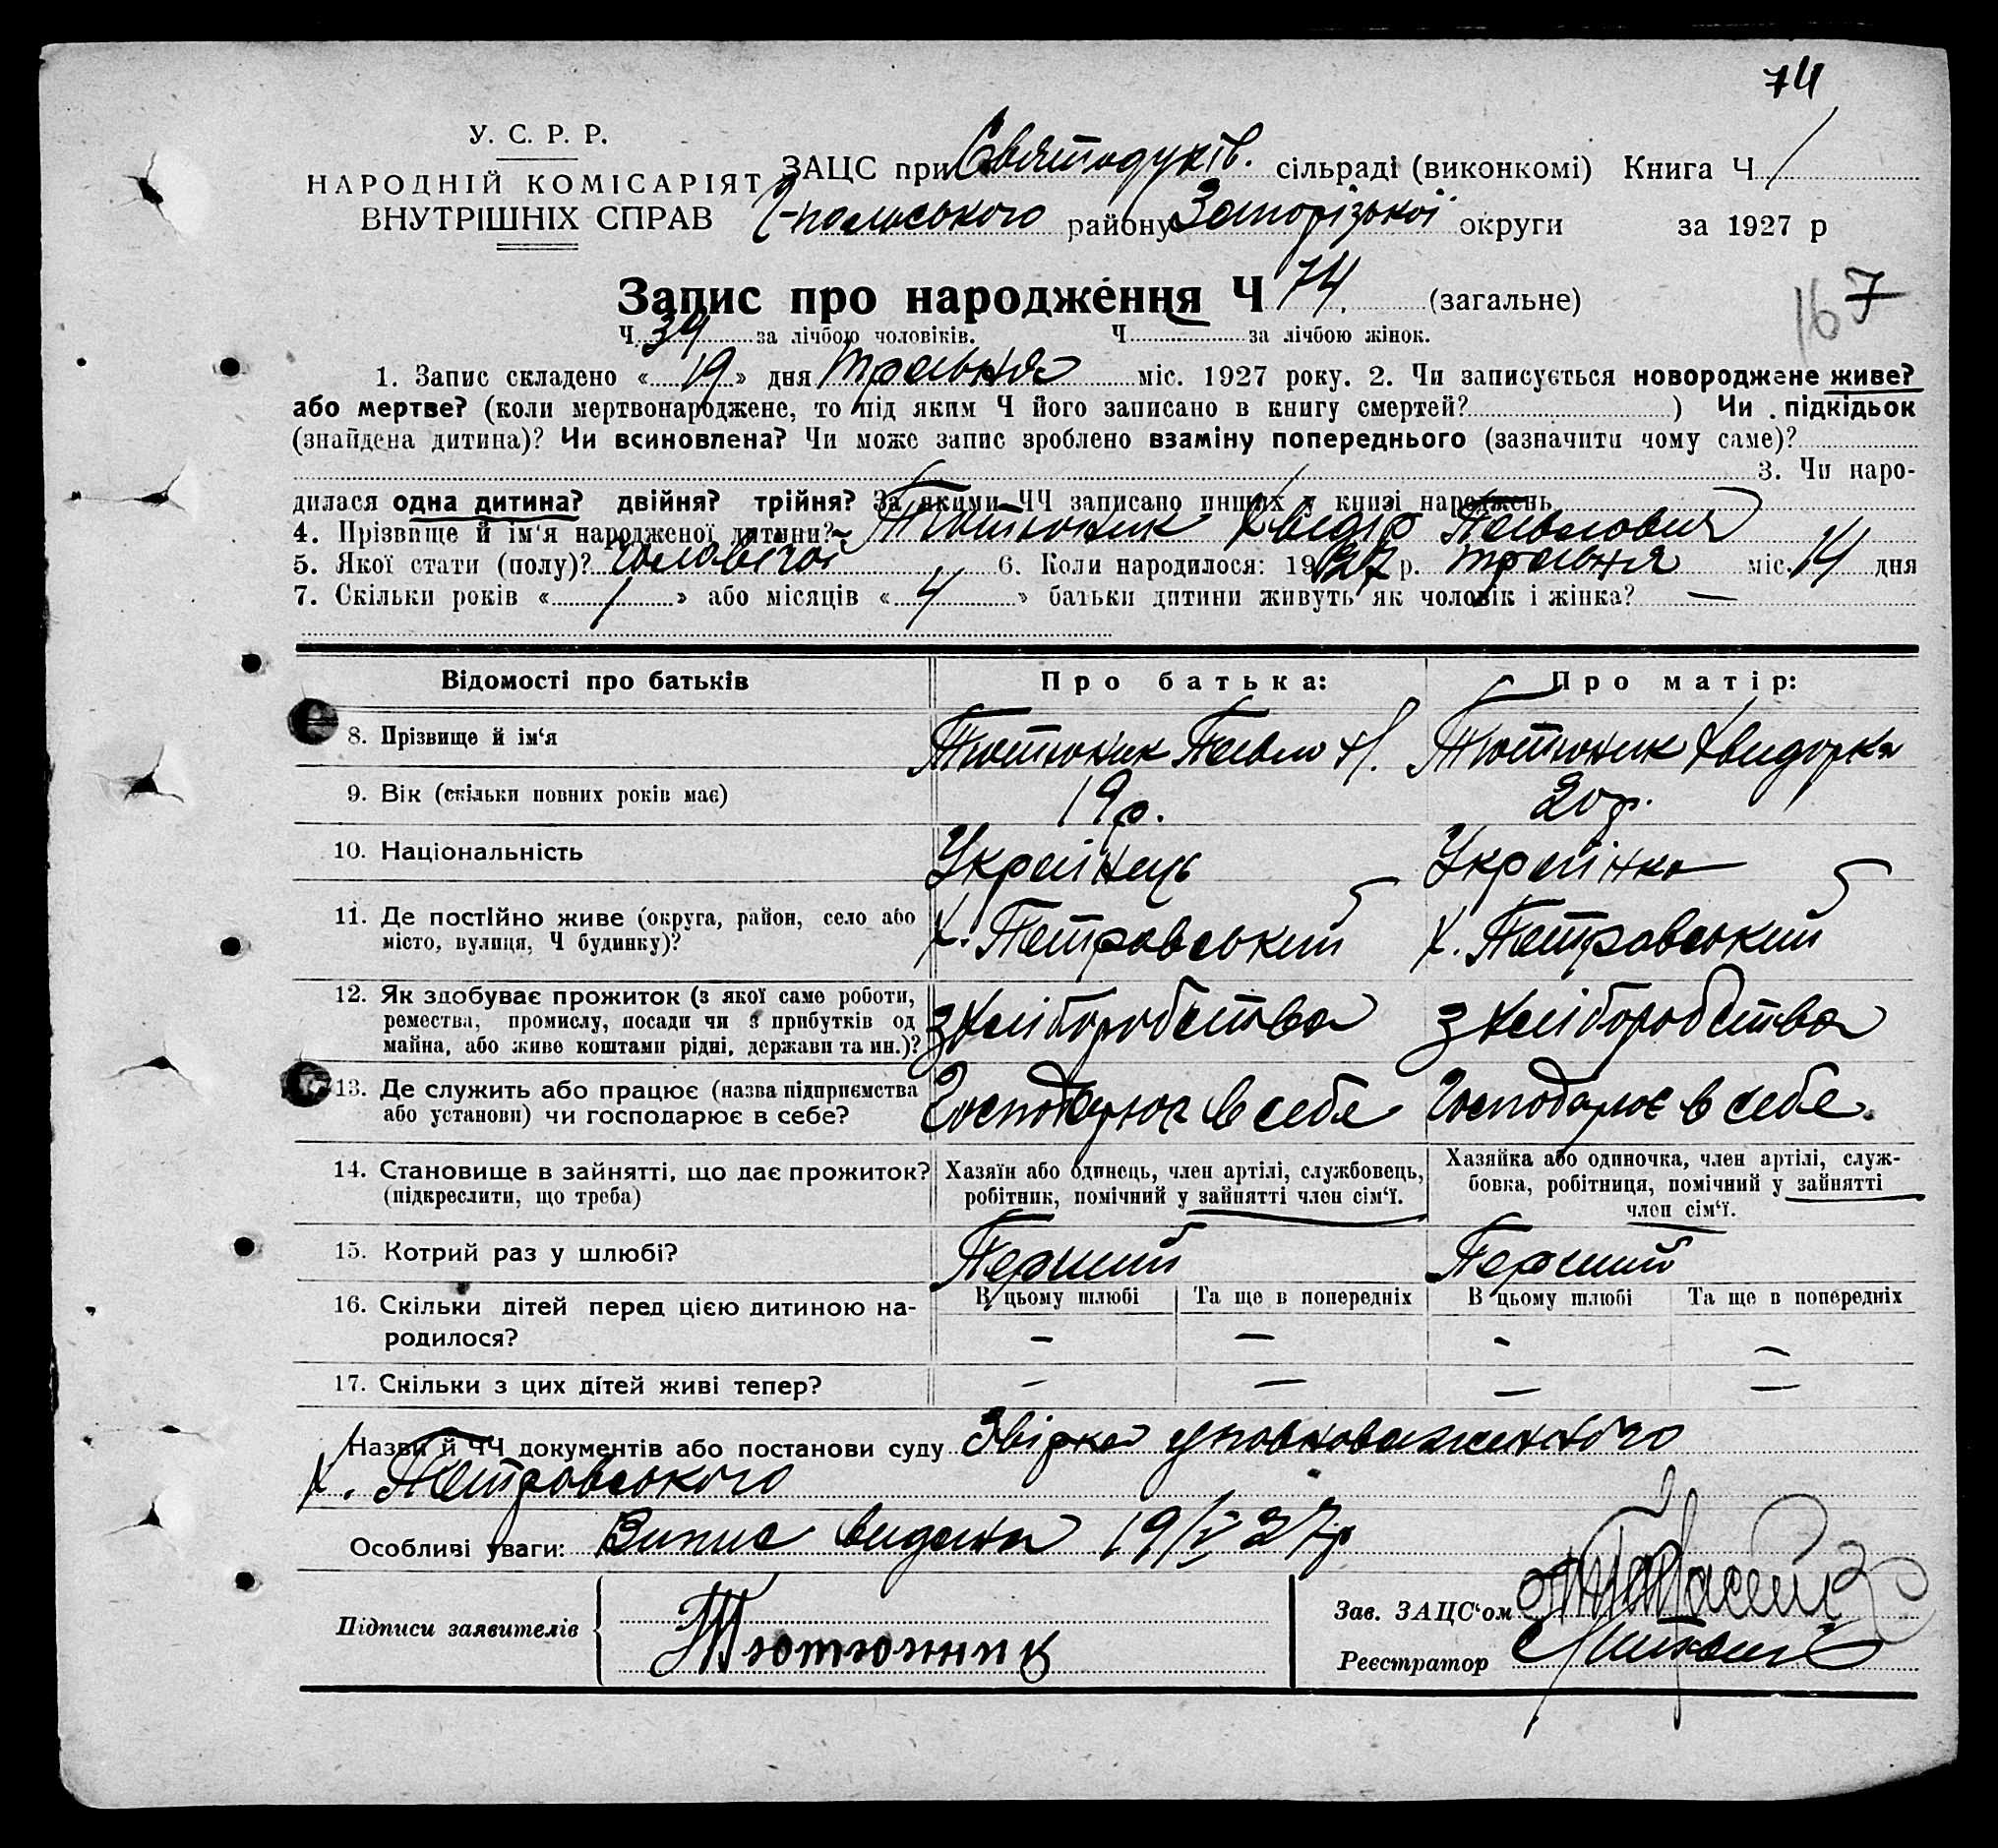 74
У. С. Р. Р.
НАРОДНІЙ КОМІСАРІЯТ
ВНУТРІШНІХ СПРАВ
ЗАЦС при Святодухів. сільраді (виконкомі) Книга Ч 1
Г-польського району Запорізької округи за 1927 р
Запис про народження Ч 74 (загальне)
167
Ч. 39 за лічбою чоловіків. Ч. за лічбою жінок.
1. Запис складено « 19 » дня травня міс. 1927 року. 2. Чи записується новороджене живе?
або мертве? (коли мертвонароджене, то під яким Ч його записано в книгу смертей? ) Чи підкідьок
(знайдена дитина)? Чи всиновлена? Чи може запис зроблено взаміну попереднього (зазначити чому саме)?
3. Чи наро-
дилася одна дитина? двійня? трійня? За якими ЧЧ записано инших у книзі народжень
4. Прізвище й ім‘я народженої дитини? Тютюник Хведір Павлович
5. Якої стати (полу)? чоловічої 6. Коли народилося: 1927 р. травня міс. 14 дня
7. Скільки років « 1 » або місяців « 4 » батьки дитини живуть як чоловік і жінка? —
Відомості про батьків Про батька: Про матір:
8. Прізвище й ім‘я Тютюник Павло Тютюник Хведорка
9. Вік (скільки повних років має) 19р. 20р.
10. Національність Українець Українка
11. Де постійно живе (округа, район, село або
місто, вулиця, Ч будинку)? х. Петровський х. Петровський
12. Як здобуває прожиток (з якої саме роботи,
ремества, промислу, посади чи з прибутків од
майна, або живе коштами рідні, держави та ин.)? з хліборобства з хліборобства
13. Де служить або працює (назва підприємства
або установи) чи господарює в себе? Господарює в себе Господарює в себе.
14. Становище в зайнятті, що дає прожиток?
(підкреслити, що треба)
Хазяїн або одинець, член артілі, службовець,
робітник, помічний у зайнятті член сім‘ї.
Хазяйка або одиночка, член артілі, служ-
бовка, робітниця, помічний у зайнятті
член сім‘ї.
15. Котрий раз у шлюбі? Перший Перший
16. Скільки дітей перед цією дитиною на-
родилося?
В цьому шлюбі Та ще в попередніх В цьому шлюбі Та ще в попередніх
— — — —
17. Скільки з цих дітей живі тепер? — — — —
Назви й ЧЧ документів або постанови суду Звірка уповноваженного
х. Петровського
Особливі уваги: Випис видана 19/V 27р
Підписи заявителів Тютюнник
Зав. ЗАЦС‘ом
Реєстратор